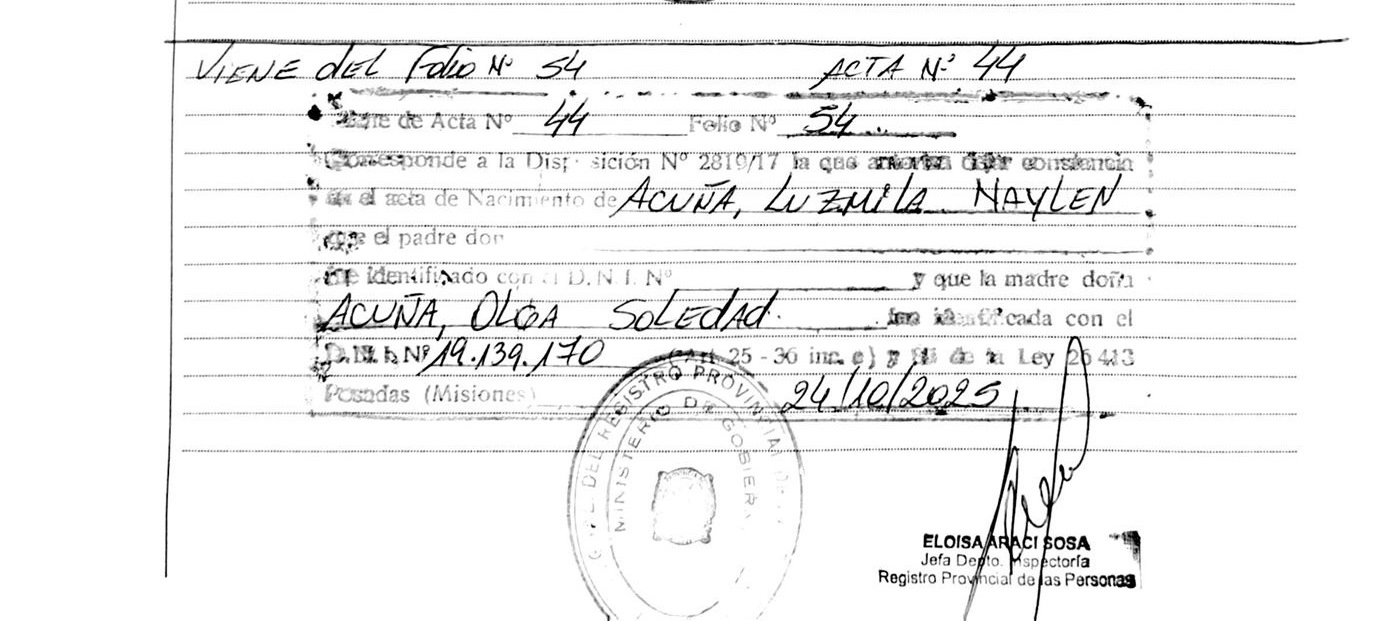 VIENE del Folio Nº 54 ACTA Nº 44
de Acta Nº 44 Folio Nº 54
Corresponde a la Disposición Nº 2819/17 la que autoriza dejar constancia
en el acta de Nacimiento de ACUÑA, LUZMILA NAYLEN
que el padre don
fue identificado con el D.N.I. Nº y que la madre doña
ACUÑA, OLGA SOLEDAD fue identificada con el
D.N.I. Nº 19.139.170 (Art. 25 - 36 inc. c) y de la Ley 26413
Posadas (Misiones) 24/10/2025
DEL REGISTRO PROVINCIAL DE
MINISTERIO DE GOBIER
ELOISA ARACI SOSA
Jefa Depto. Inspectoría
Registro Provincial de las Personas